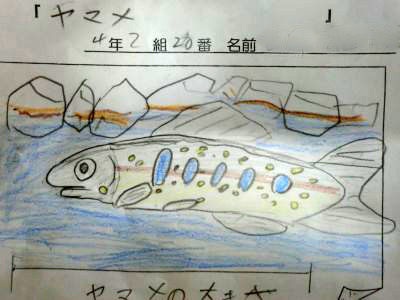 『ヤマメ』
4年2組28番 名前
ヤマメの大きさ